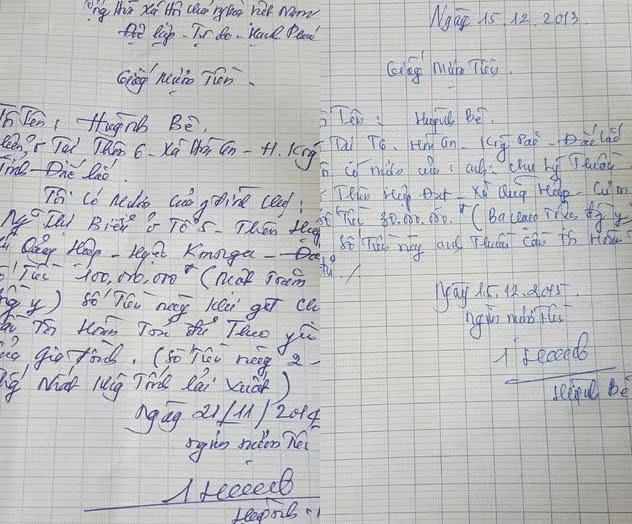 Xã Hội chủ nghĩa việt Nam
Độc lập - Tự do - Hạnh Phúc
Giấy Nhận Tiền.
Tên: Huỳnh Bê.
Tại Thôn 6 - Xã Hòa An - H. Krg
Tỉnh - Đắc lắc.
Tôi có Nhận của gđình chị:
Ngô Thị Biển ở Tổ 5 - Thôn
Quảng Hiệp - Huyện Kmơga -
Tiền 100,000,000đ (Một Trăm
y) Số Tiền này khi
Tôi Hoàn Trả đủ Theo
gia đình. (Số Tiền này 2
Nhất Không Tính lãi xuất)
Ngày 21/11/2014
người nhận Tiền
Huỳnh
Ngày 15.12.2013.
Giấy Nhận Tiền.
Tên: Huỳnh Bê.
T6. Hòa An - Krg Pắc - Đắc lắc
có nhận của anh: chu Thuấn
Thôn Hiệp Đạt - Xã Quảng Hiệp - Cư m
Số Tiền 30.000.000.đ (Ba
Số Tiền này anh Thuấn cần Tôi Hoàn
đủ./
Ngày 15.12.2015.
người nhận Tiền
Huỳnh Bê